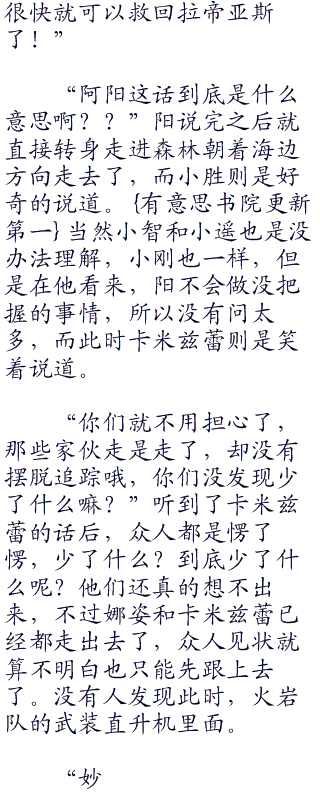 很快就可以救回拉帝亚斯
了！”
“阿阳这话到底是什么
意思啊？？”阳说完之后就
直接转身走进森林朝着海边
方向走去了，而小胜则是好
奇的说道。{有意思书院更新
第一}当然小智和小遥也是没
办法理解，小刚也一样，但
是在他看来，阳不会做没把
握的事情，所以没有问太
多，而此时卡米兹蕾则是笑
着说道。
“你们就不用担心了，
那些家伙走是走了，却没有
摆脱追踪哦，你们没发现少
了什么嘛？”听到了卡米兹
蕾的话后，众人都是愣了
愣，少了什么？到底少了什
么呢？他们还真的想不出
来，不过娜姿和卡米兹蕾已
经都走出去了，众人见状就
算不明白也只能先跟上去
了。没有人发现此时，火岩
队的武装直升机里面。
“妙